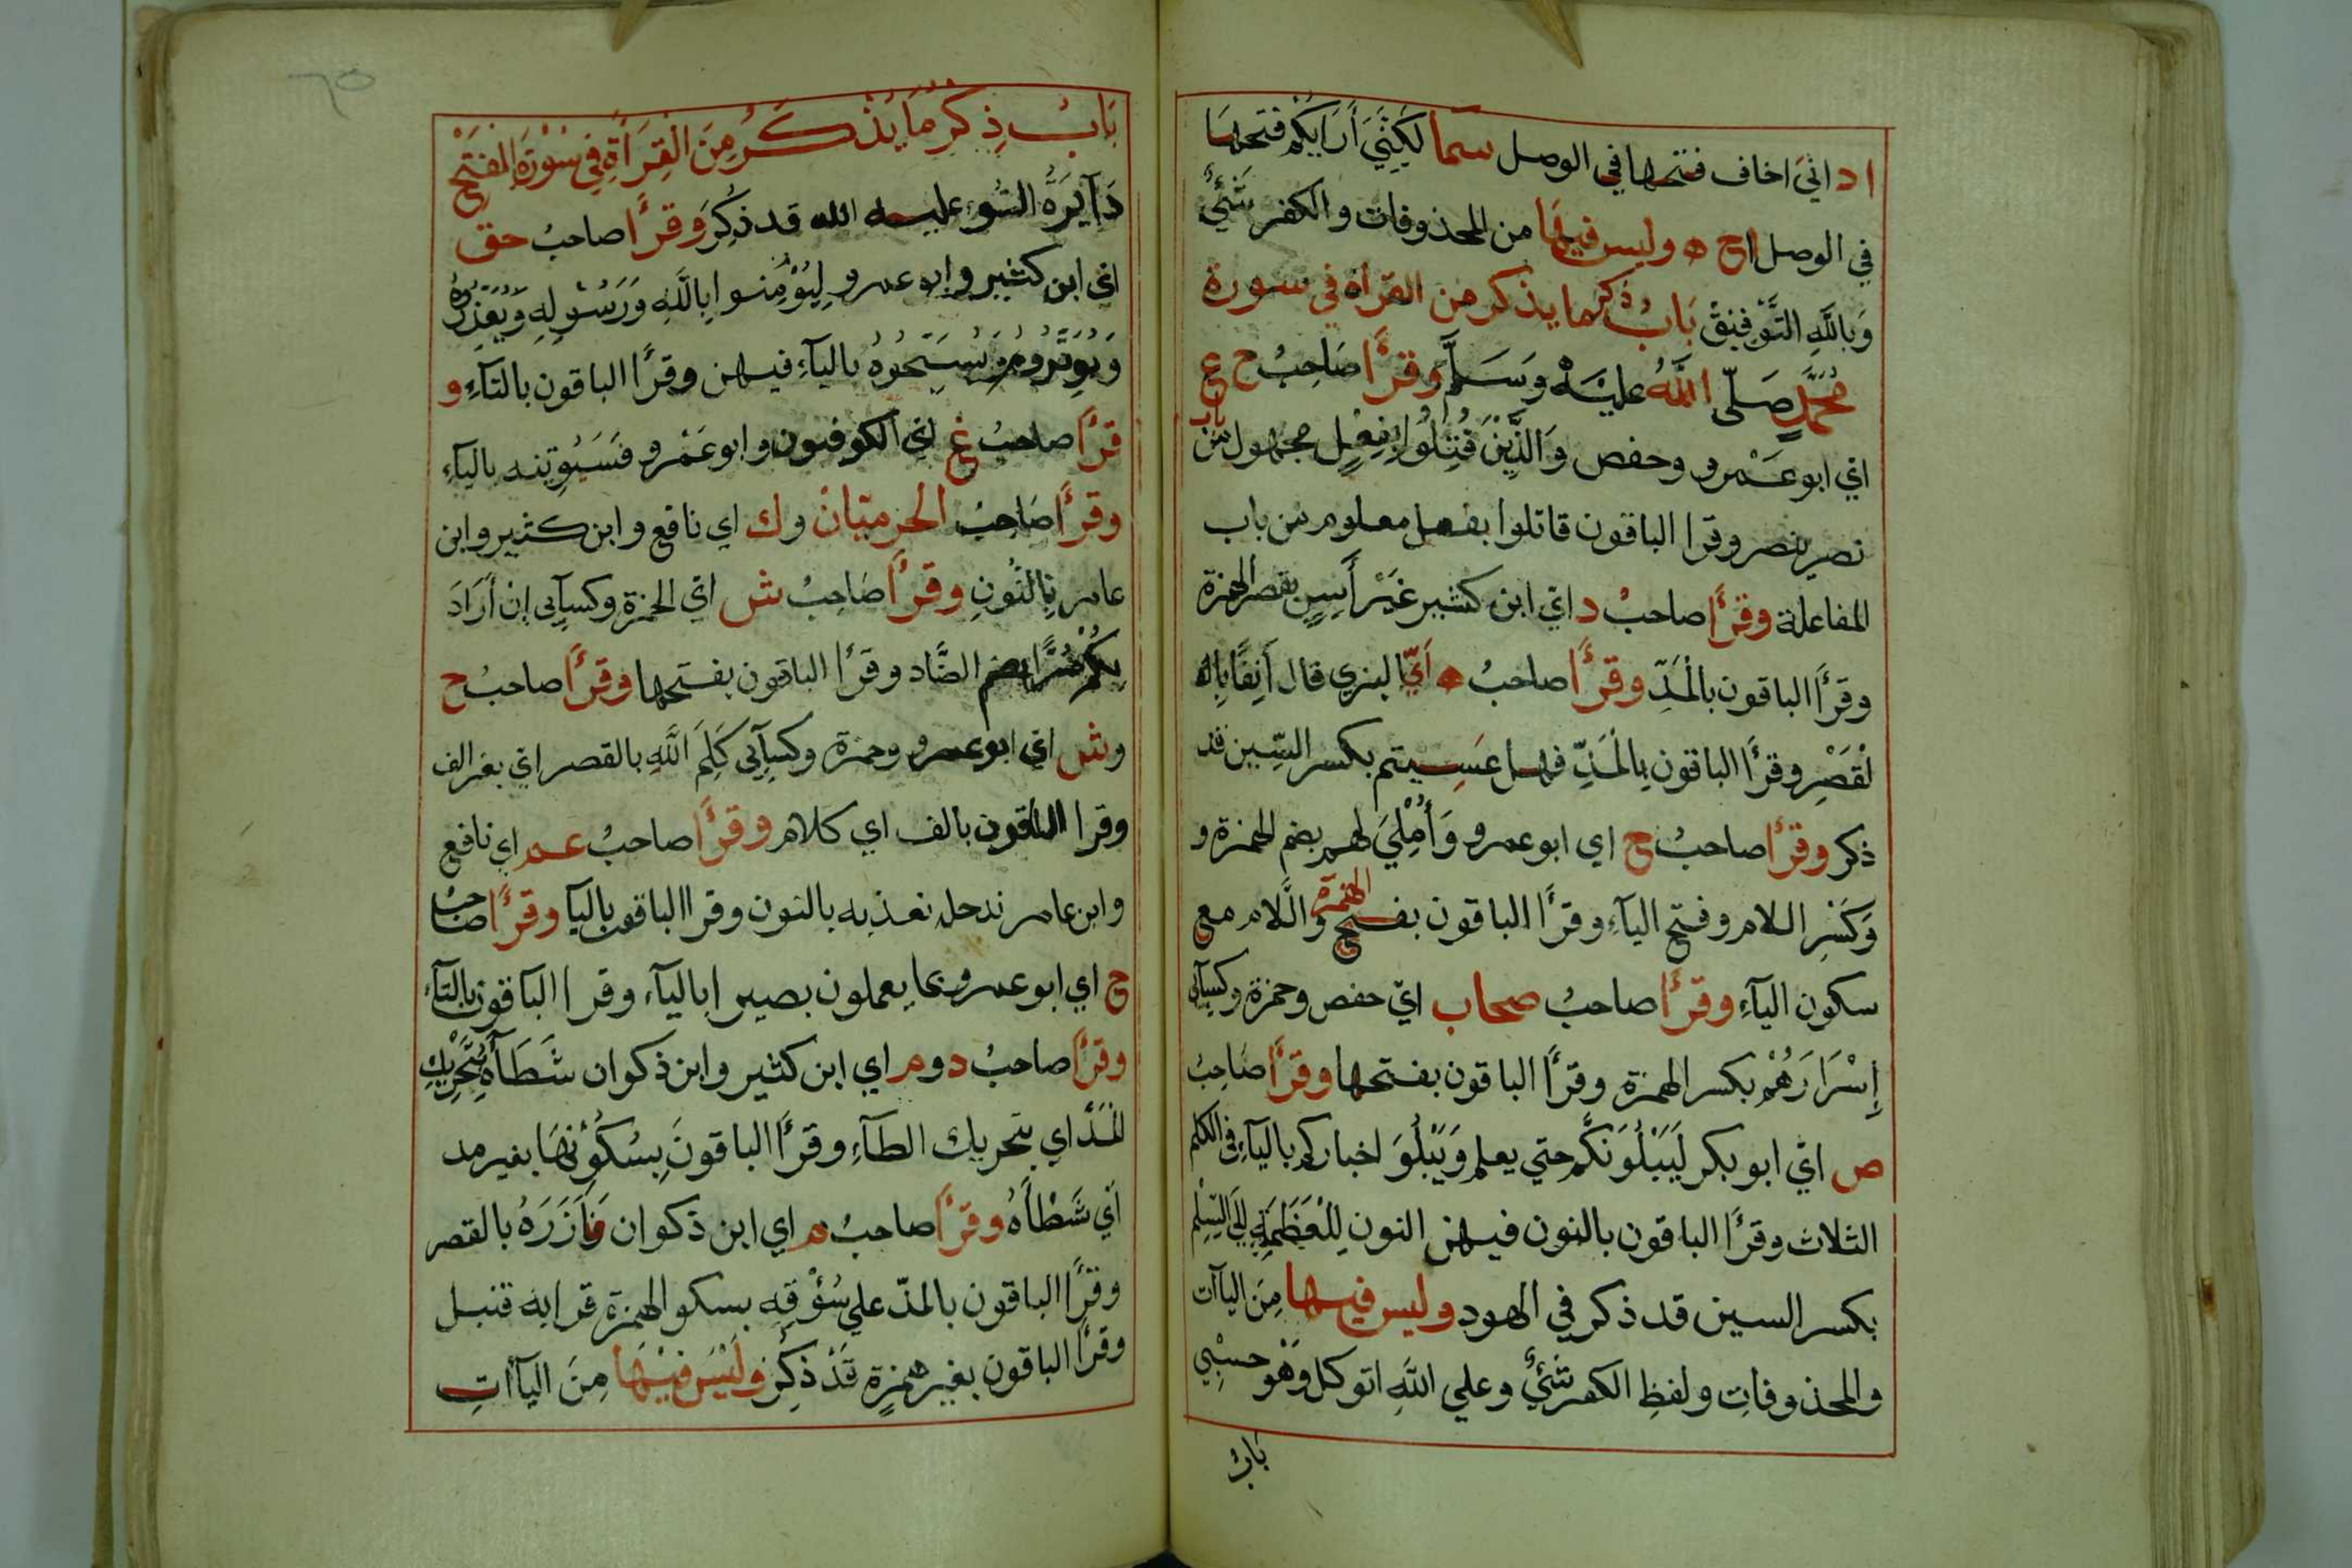 اد انيَ اخاف فتحها في الوصل سما لكِنّيَ أَرَايكم فتحها
في الوصل اح ه وليس فيها من المحذوفات والكفر شَيْءٌ
وَبِاللَّهِ التَّوْفِيقْ بَابُ ذكر ما يذكر من القرأة في سورة
مُحَمَّدٍ صَلّى اللَّهُ عليْهْ وَسَلَّمَ وقرَأَ صَاحِبُ ح ع
اي ابو عَمْرو وحفص وَالذَّيْنَ قُتِلُوْا بِفِعْلٍ مجهول من باب
نصر ينصر وقرا الباقون قاتلوا بفعل معلوم من باب
المفاعلة وقرَأَ صاحبُ د ايْ ابن كثير غَيْرَ أَسِنٍ بقصر الهمزة
وقرَأَ الباقون بالْمَدِّ وقرَأَ صاحبُ ه اَيّ البزي قال أَنِفًا بِال
لْقَصْرِ وقرَأَ الباقون بِالْمَدِّ فهل عَسِيتم بكسر السِّين قد
ذكر وقرَأَ صاحبُ ح اي ابو عمرو وَأُمْلِيَ لهم بضم الهمزة و
وَكَسْرِ اللام وفتح الياءِ وقرَأَ الباقون بفتح الهمزة وَالَّلام مع
سكون الياءِ وقرَأَ صاحبُ صحاب ايْ حفص وحمزة وكسآئي
إِسْرَارَهُمْ بكسر الهمزة وقرَأَ الباقون بفتحها وقرَأَ صَاحِبُ
ص ايْ ابو بكر لَيَبْلُوَنَّكُم حتي يعلم وَيَبْلُوَ اخباركم بالياءِ في الكلم
الثلاث وقرَأَ الباقون بالنون فيهن النون لِلْعَظَمَةِ الي السِّلْمِ
بكسر السين قد ذكر في الهود وليس فيها مِنَ الياآت
والمحذوفاتِ ولفظِ الكفر شَيْءٌ وعلي اللَّهِ اتوكل وَهْوَ حسْبِي
بَابُ
٦٥
بَابُ ذِكْرِ مَا يُذْكَرُ مِنَ الْقِرَاَةِ فِي سُوْرَةِ الْفَتْحِ
دَآئِرَةُ السَّوْءِ عليه الله قد ذُكِرَ وقرَأَ صاحبُ حق
ايْ ابن كثير وابو عمرو لِيُؤْمِنُوا بِاللَّهِ وَرَسُوْلِهِ وَيُعَزِّرُوْهُ
وَيُوَقِّرُوْهُ وَيُسَبِّحُوْهُ بالياءِ فيهن وقرَأَ الباقون بالتاءِ و
قرَأَ صاحبُ غ ايْ الكوفيون وابو عَمْرو فَسَيُوتيه بالياءِ
وقرَأَ صَاحِبُ الحرميّانْ و ك اي نافع وابن كثير وابن
عامر بِالنُّونِ وقرَأَ صَاحِبُ ش ايْ الحمزة وكسآئي إن أَرَادَ
بِكُمْ ضُرًّا بضم الضَّاد وقرَأَ الباقون بفتحها وقرَأَ صاحبُ ح
وش ايْ ابو عمرو وحمزة وكسآئي كَلِمَ اللَّهِ بالقصر ايْ بغير الف
وقرا الباقون بالف اي كلام وقرَأَ صاحبُ عم اي نافع
وابن عامر ندخله نعذبه بالنون وقرا الباقون باليا وقرَأَ صاحبُ
ح اي ابو عمرو بما يعملون بصيرا بالياء وقرا الباقون بالتآء
وقرَأَ صاحبُ د و م اي ابن كثير وابن ذكوان شَطَأَهُ بِتَحْرِيْكِ
الْمَدِّ اي بتحريك الطآءِ وقرَأَ الباقونَ بِسُكُوْنِهَا بغير مد
اَيْ شَطْأَهُ وقرَأَ صاحبُ م اي ابن ذكوان فَأَزَرَهُ بالقصر
وقرَأَ الباقون بالمدّ علي سُؤْقِهِ بسكو الهمزة قرا به قنبل
وقرَأَ الباقون بغير همزةٍ قَدْ ذكِرَ وَلَيْسَ فِيْهَا مِنَ الياآتِ